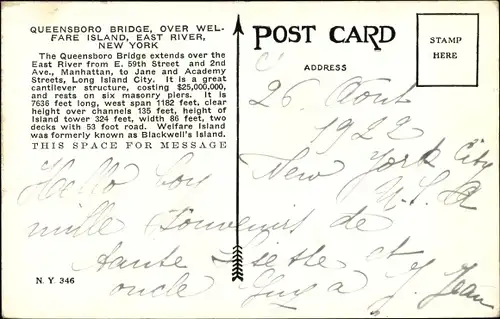 QUEENSBORO BRIDGE, OVER WEL-
FARE ISLAND, EAST RIVER,
NEW YORK
The Queensboro Bridge extends over the
East River from E. 59th Street and 2nd
Ave., Manhattan, to Jane and Academy
Streets, Long Island City. It is a great
cantilever structure, costing $25,000,000,
and rests on six masonry piers. It is
7636 feet long, west span 1182 feet, clear
height over channels 135 feet, height of
Island tower 324 feet, width 86 feet, two
decks with 53 foot road. Welfare Island
was formerly known as Blackwell's Island.
THIS SPACE FOR MESSAGE
Hello boy
mille Souvenirs de
tante et
oncle J. Jean
N. Y. 346
POST CARD
ADDRESS
STAMP
HERE
26 Aout
1922
New York City
U.S.A